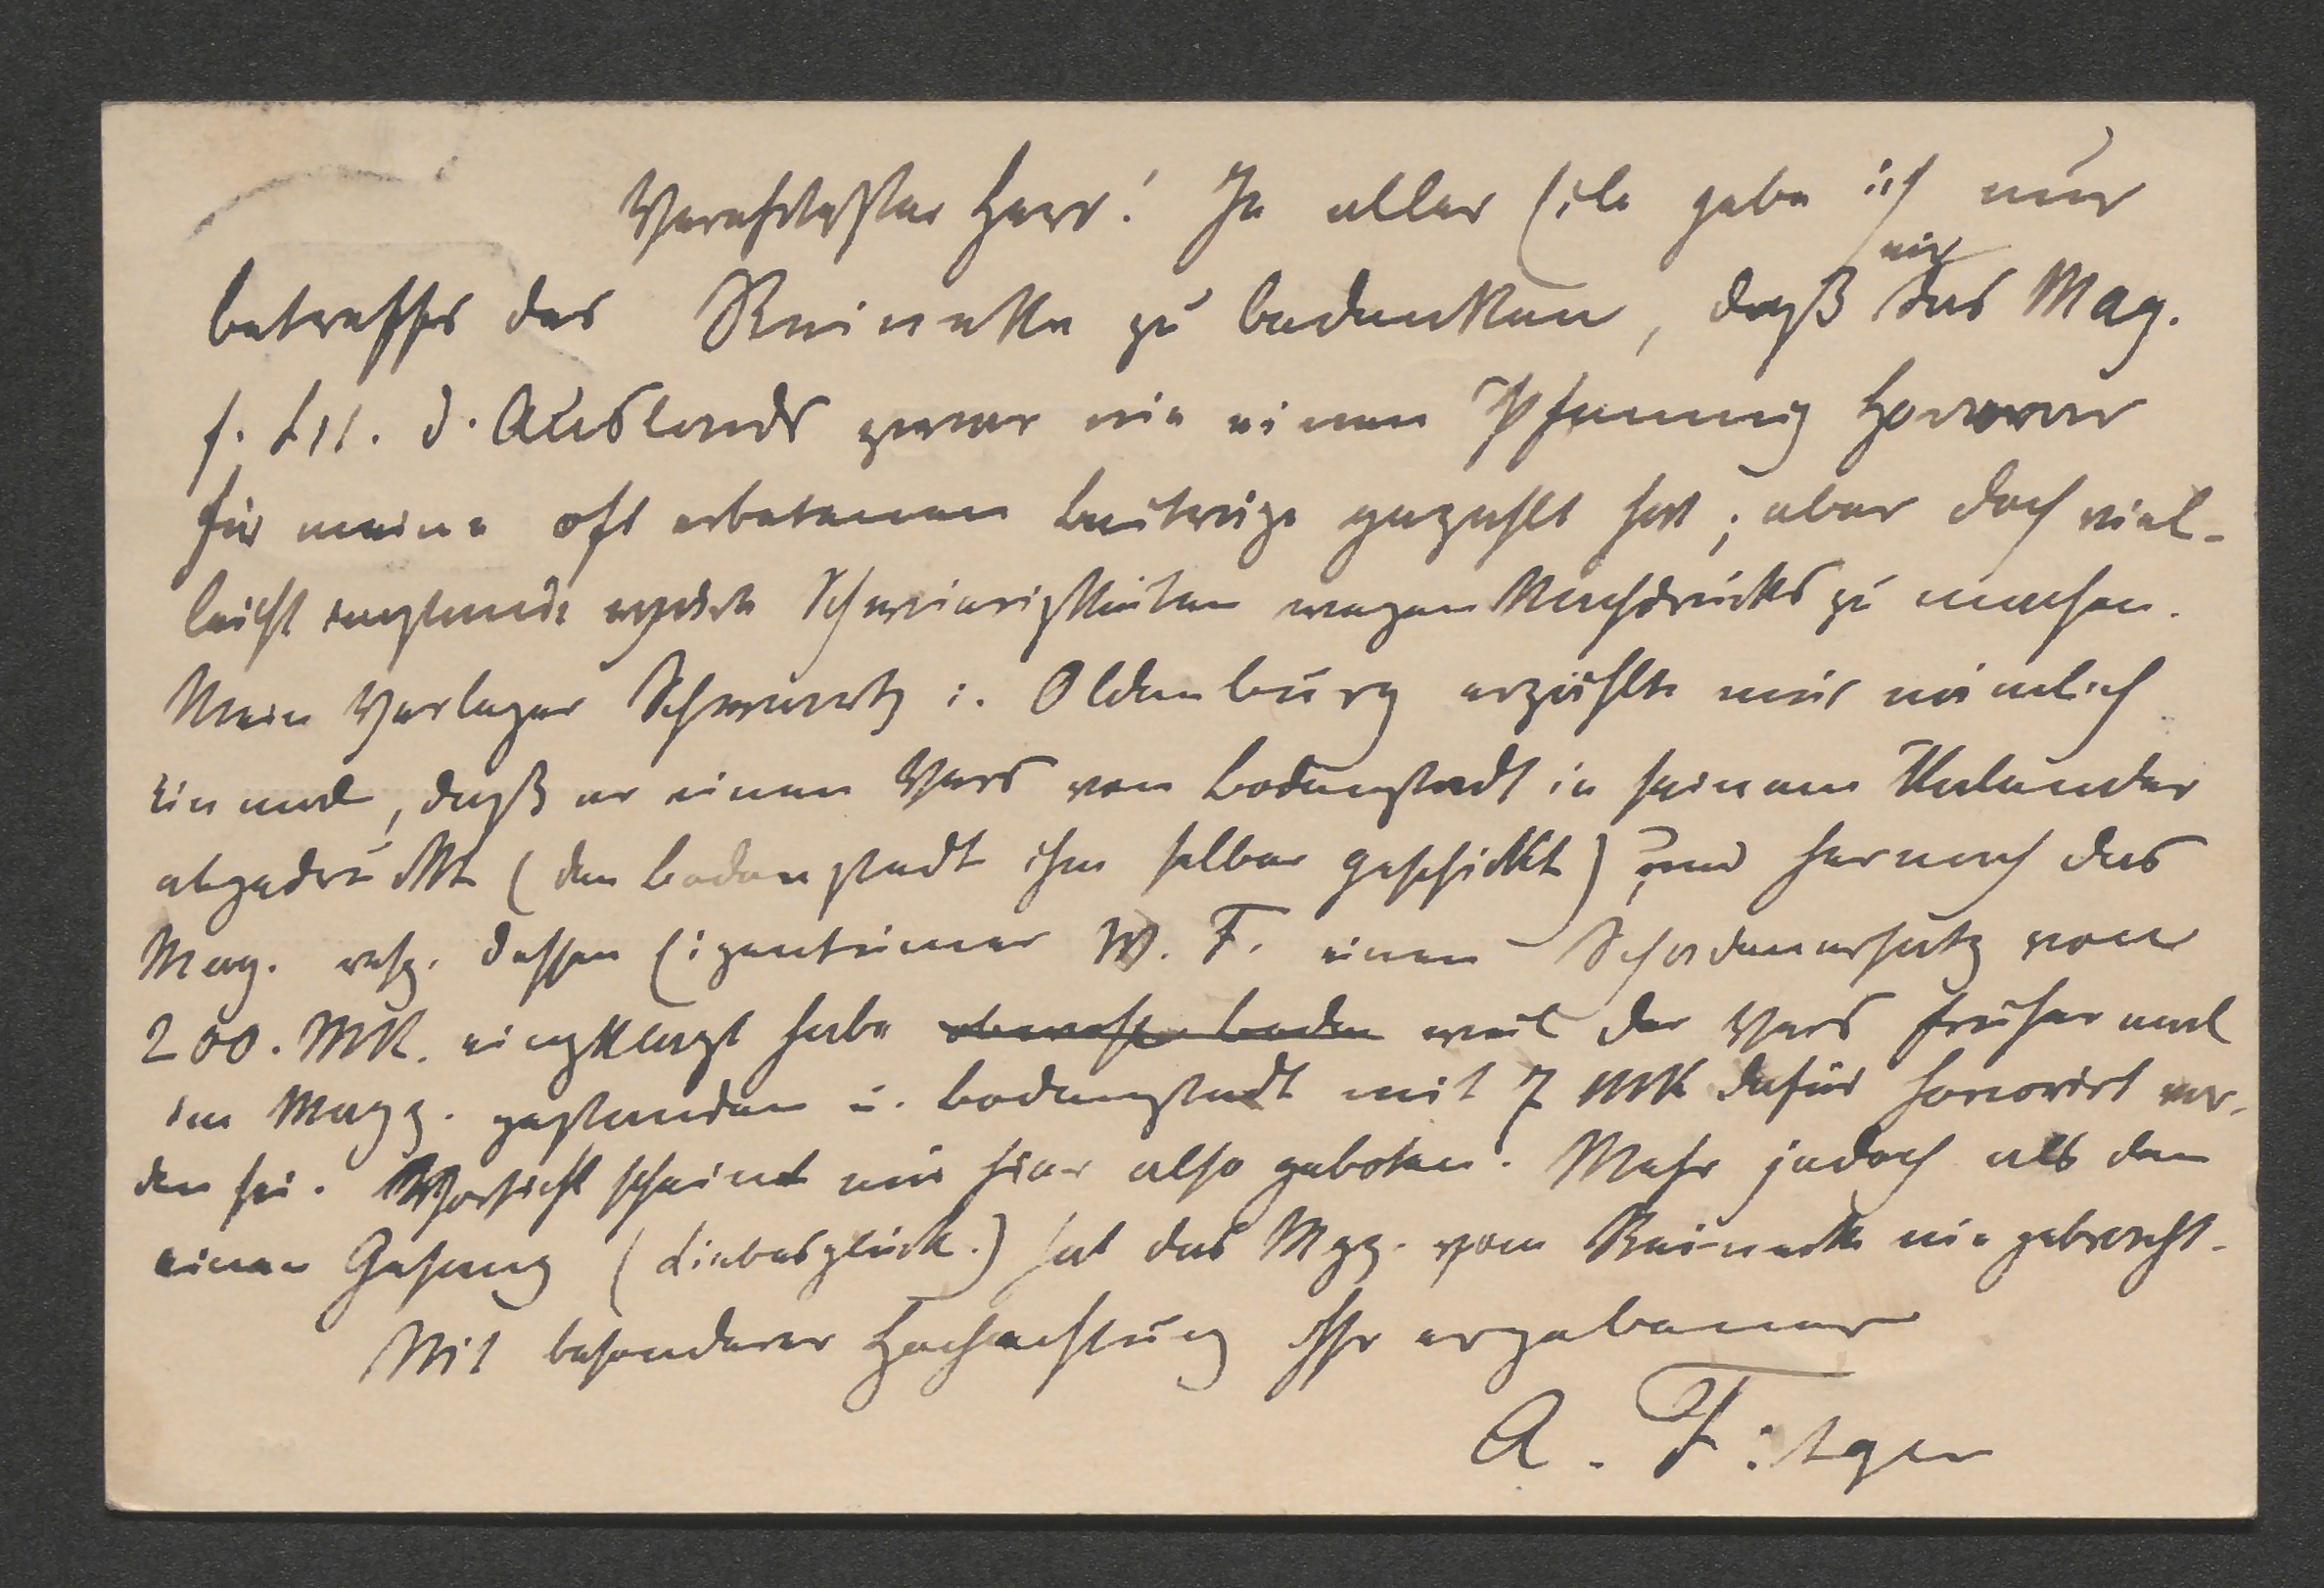 Verehrtester Herr! In aller Eile gebe ich nur
betreffs des Reineke zu bedenken, daß mir das Mag.
f. Lit. d. Auslands zwar nie einen Pfennig Honorar
für meine oft erbetenen Beiträge gezahlt hat; aber doch viel-
leicht Schwierigkeiten wegen Nachdrucks zu machen.
Mein Verleger Schwartz i. Oldenburg erzählte mir nämlich
einmal, daß er einen Vers von Bodenstedt in seinem Kalender
abgedruckt (den Bodenstedt ihm selber geschickt) und hernach das
Mag. resp. dessen Eigentümer W. F. einen Schadenersatz von
200. Mk. eingeklagt habe weil der Vers früher mal
im Magz. gestanden u. Bodenstedt mit 7 Mk dafür honorirt wor-
den sei. Vorsicht scheint mir hier also geboten. Mehr jedoch als den
einen Gesang (Liebesglück.) hat das Mgz. vom Reineke nie gebracht.
Mit besonderer Hochachtung Ihr ergebener
A. Fitger